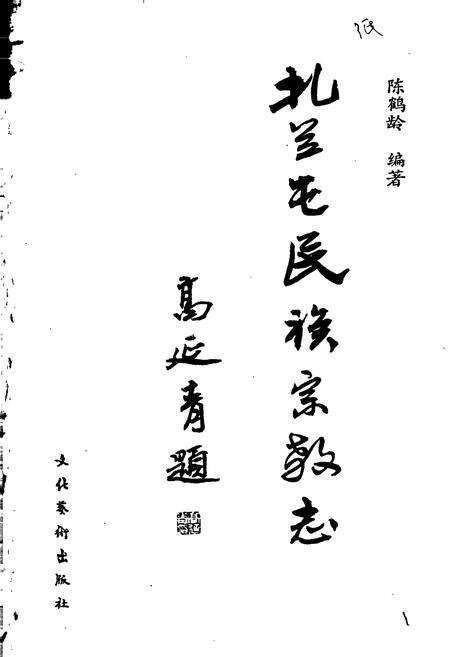 纸
陈鹤龄 编著
扎兰屯民族宗教志
高延青題
文化藝術出版社
1